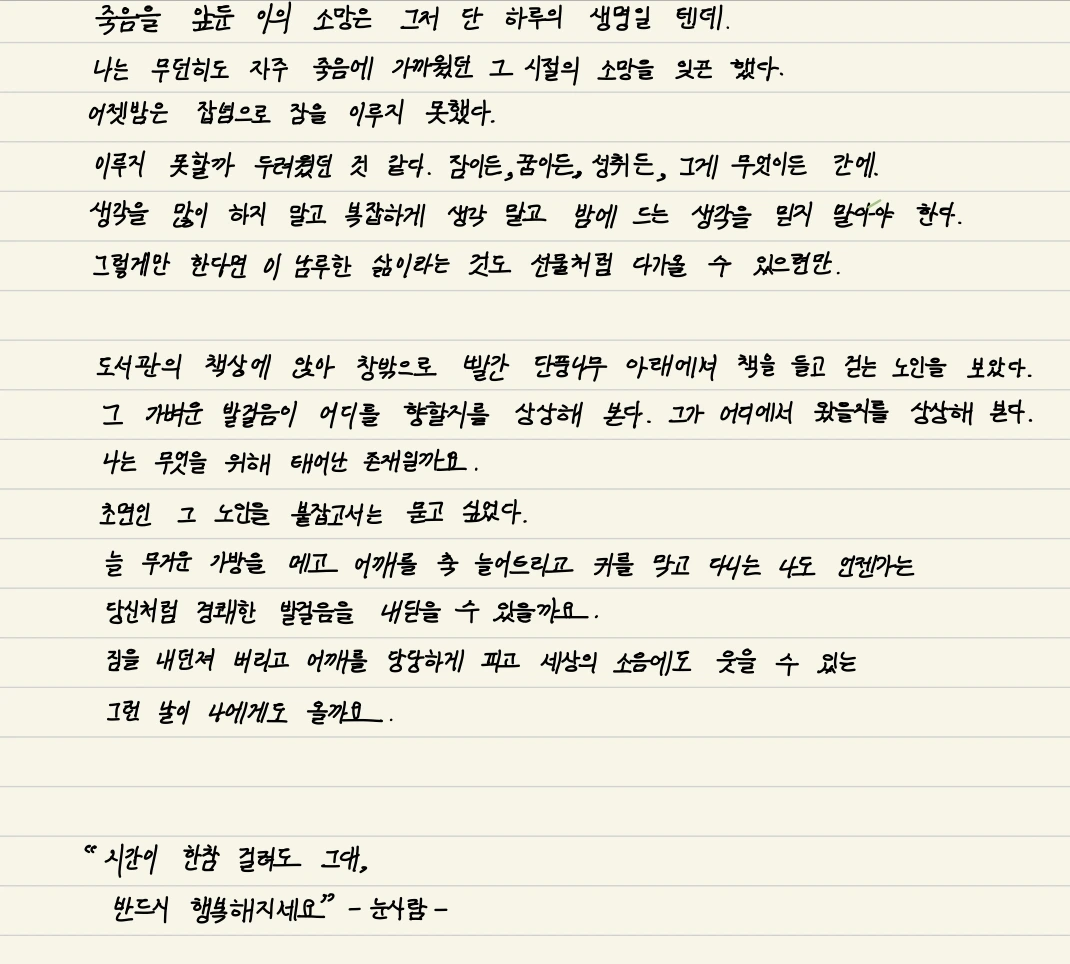 죽음을 앞둔 이의 소망은 그저 단 하루의 생명일 텐데.
나는 무던히도 자주 죽음에 가까웠던 그 시절의 소망을 잊곤 했다.
어젯밤은 잡념으로 잠을 이루지 못했다.
이루지 못할까 두려웠던 것 같다. 잠이든, 꿈이든, 성취든, 그게 무엇이든 간에.
생각을 많이 하지 말고 복잡하게 생각 말고 밤에 드는 생각을 믿지 말아야 한다.
그렇게만 한다면 이 남루한 삶이라는 것도 선물처럼 다가올 수 있으련만.
도서관의 책상에 앉아 창밖으로 빨간 단풍나무 아래에서 책을 들고 걷는 노인을 보았다.
그 가벼운 발걸음이 어디를 향할지를 상상해 본다. 그가 어디에서 왔을지를 상상해 본다.
나는 무엇을 위해 태어난 존재일까요.
초면인 그 노인을 붙잡고서는 묻고 싶었다.
늘 무거운 가방을 메고 어깨를 축 늘어트리고 귀를 막고 다니는 나도 언젠가는
당신처럼 경쾌한 발걸음을 내딛을 수 있을까요.
짐을 내던져 버리고 어깨를 당당하게 피고 세상의 소음에도 웃을 수 있는
그런 날이 나에게도 올까요.
“시간이 한참 걸려도 그대,
반드시 행복해지세요” - 눈사람 -